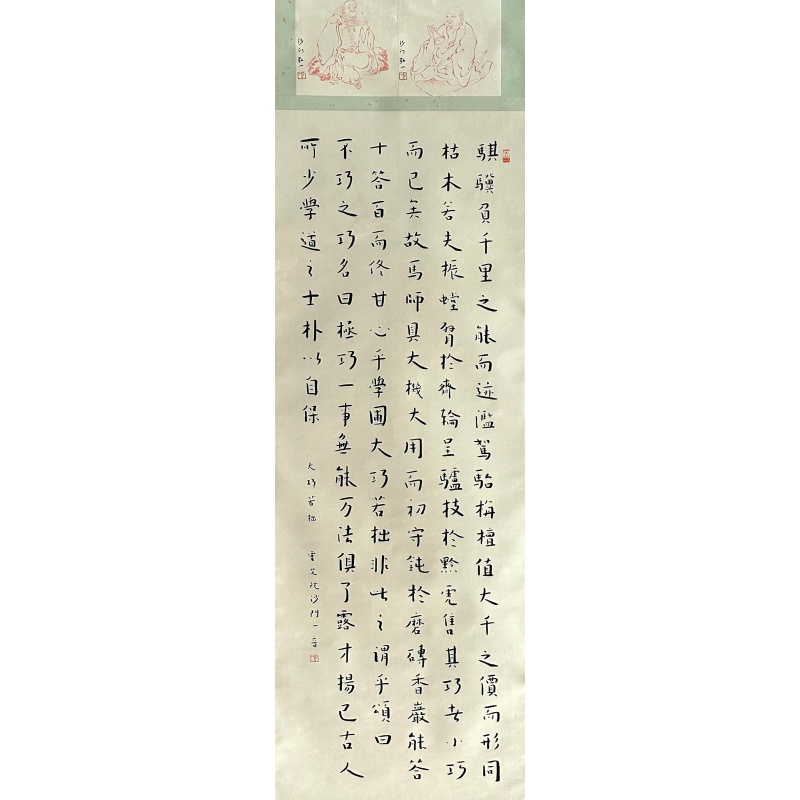 沙門弘一
沙門弘一
騏驥負千里之能而迹濫駑駘栴檀值大千之價而形同
枯木若夫振螳臂於齊輪呈驢技於黔虎售其巧者小巧
而已矣故馬師具大機大用而初守鈍於磨磚香嚴能答
十答百而佟甘心乎學圃大巧若拙非此之謂乎頌曰
不巧之巧名曰極巧一事無能万法俱了露才揚己古人
所少學道之士朴以自保
大巧若拙 沙門一音